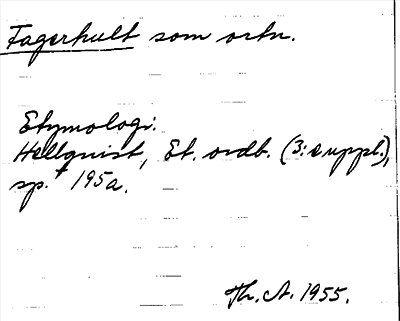 Fagerhult som ortn.
Etymologi.
Hellquist, Et. ordb. (3: suppl.),
sp. † 195a.
Th. A. 1955.